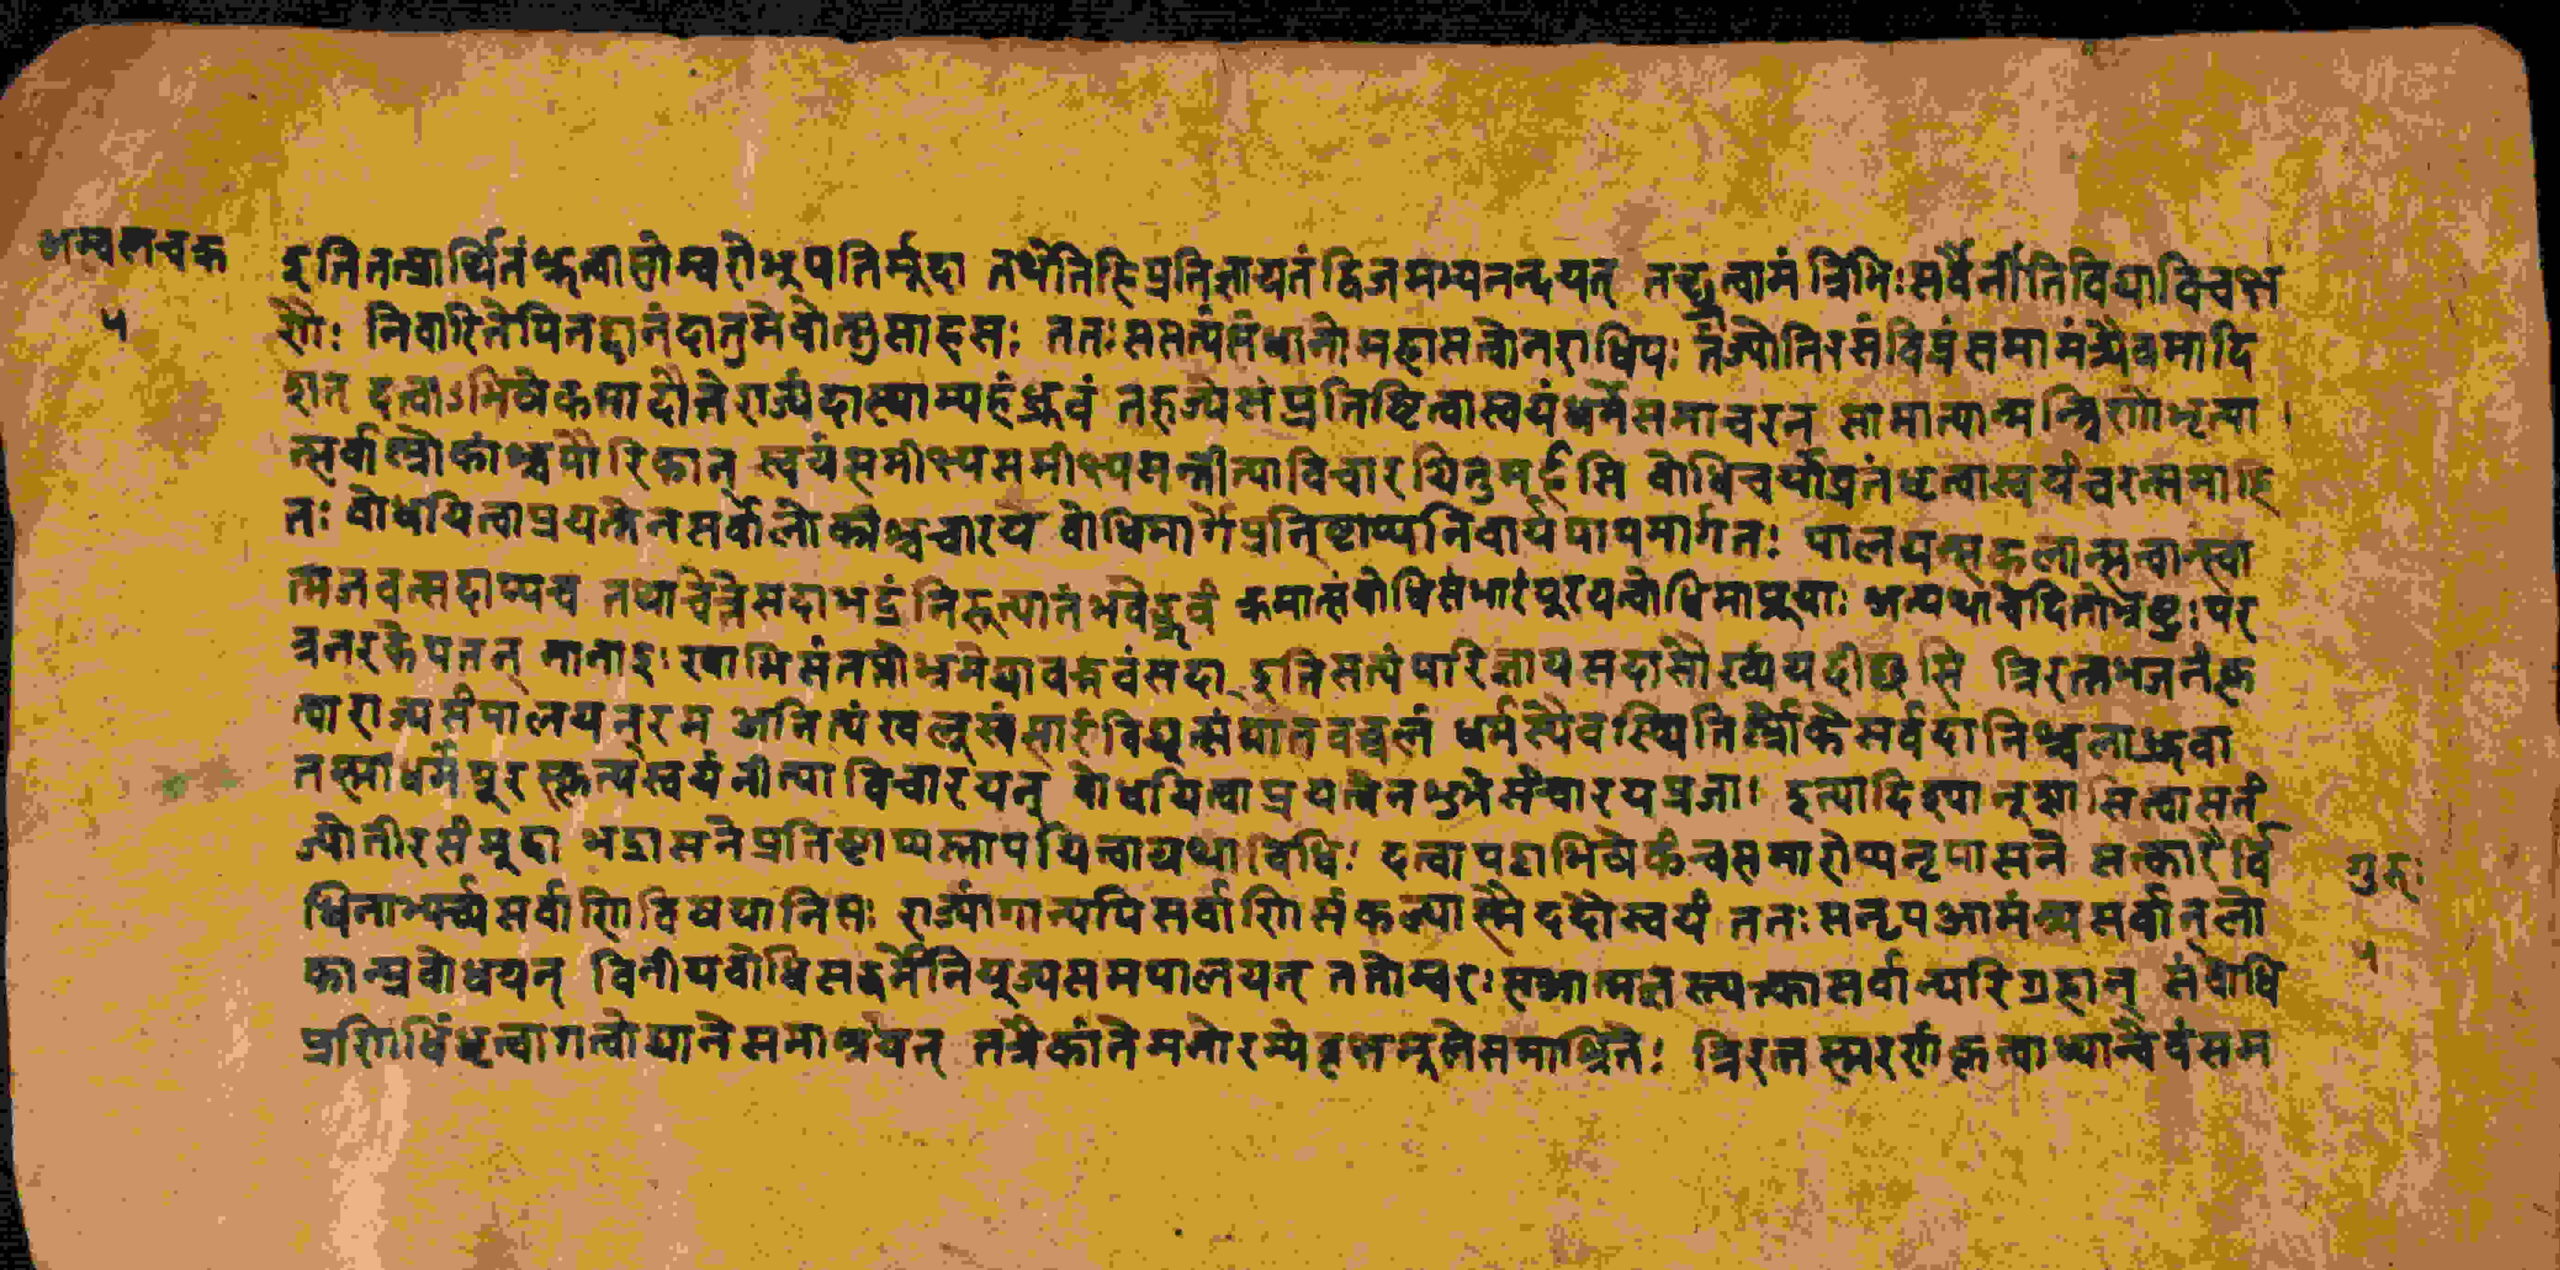 अम्वलचक्र
५
इतितत्प्रार्थितंश्रुत्वासोम्वरोभूपतिर्मूदा तथेतिहिप्रतिज्ञायतंद्विजमभ्यनन्दयत् तच्छ्रुत्वामंत्रिभिःसर्वैर्नीतिविद्याविचक्ष
णैः निवारितेपितद्दानंदातुमेवोत्सुसाहसः ततःससत्यसंधानोमहासत्वोनराधिपः तंज्योतिरसंविप्रंसमामंत्र्यैवमादि
शत दत्वाऽभिषेकमादौतेराज्यंदास्याम्यहंध्रुवं तद्रज्येसंप्रतिष्ठित्वास्वयंधर्मेसमाचरन् सामात्यान्मन्त्रिणोभृत्या
त्सर्वाल्लोकांश्चपौरिकान् स्वयंसमीक्ष्यसमीक्ष्यसन्नीत्याविचारयितुमर्हसि वोधिचर्याव्रतंधृत्वास्वयंचरत्समाहि
तः वोधयित्वाप्रयत्नेनसर्वांलोकांश्चचारय वोधिमार्गेप्रतिष्ठाप्यनिवार्यपापमार्गतः पालयत्सकलान्सत्वान्स्वा
त्मजवत्सदाप्यच तथाचेत्तेसदाभद्रंनिरुत्पातंभवेद्ध्रुवं क्रमात्संवोधिसंभारंपूरयन्वोधिमाप्नूयाः अन्यथाचेदितोभ्रष्टुःपर
त्रनरकेपतन् नानादुःखाभिसंतप्तोभ्रमेद्यावद्भवंसदा इतिसत्यंपरिज्ञायसदासौख्यंयदीछसि त्रिरत्नभजनंकृ
त्वाराज्यसंपालयन्रम अनित्यंखलूसंसारंविद्यूत्संघातवच्चलं धर्मस्यैवस्थितिर्ल्लोकेसर्वदानिश्चलाध्रुवा
तस्माधर्मंपूरस्कृत्यस्वयंनीत्याविचारयन् वोधयित्वाप्रयत्नेनशुभेसंचारयप्रजाः इत्यादिश्यानूशासित्वासतं
ज्योतीरसंमूदा भद्रासनेप्रतिष्ठाप्यस्नापयित्वायथाविधिः दत्वापट्टाभिषेकंचसमारोप्यनृपासने सत्कारैर्वि
धिनाभ्यर्च्यसर्वाणिविषयानिसः राज्यांगान्यपिसर्वाणिसंकल्प्यास्मैददौस्वयं ततःसनृपआमंत्र्यसर्वान्लो
कान्प्रवोधयन् विनीयवोधिसद्धर्मेनियूज्यसमपालयन् ततोम्वरःसभामतस्त्यक्त्कासर्वान्परिग्रहान् संवोधि
प्रणिधिंधृत्वागत्वोद्यानेसमाश्रयन् तत्रैकांतेमनोरम्येवृक्षमूलेसमाश्रितेः त्रिरत्नस्मरणंकृत्वाध्यात्वैवंसम
गुरुः
५